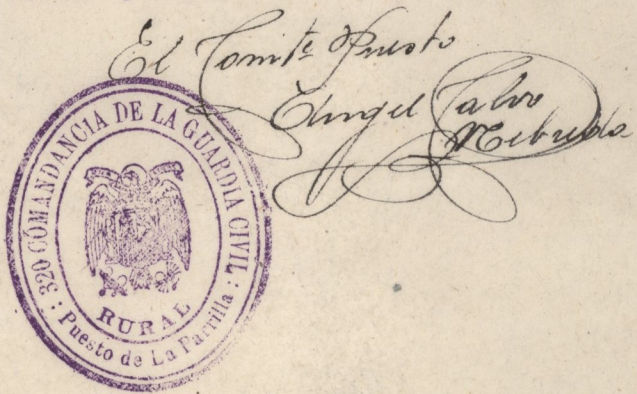 El Comte Puesto
Angel Calvo
Nebreda
320 COMANDANCIA DE LA GUARDIA CIVIL :
RURAL
: Puesto de La Parrilla :